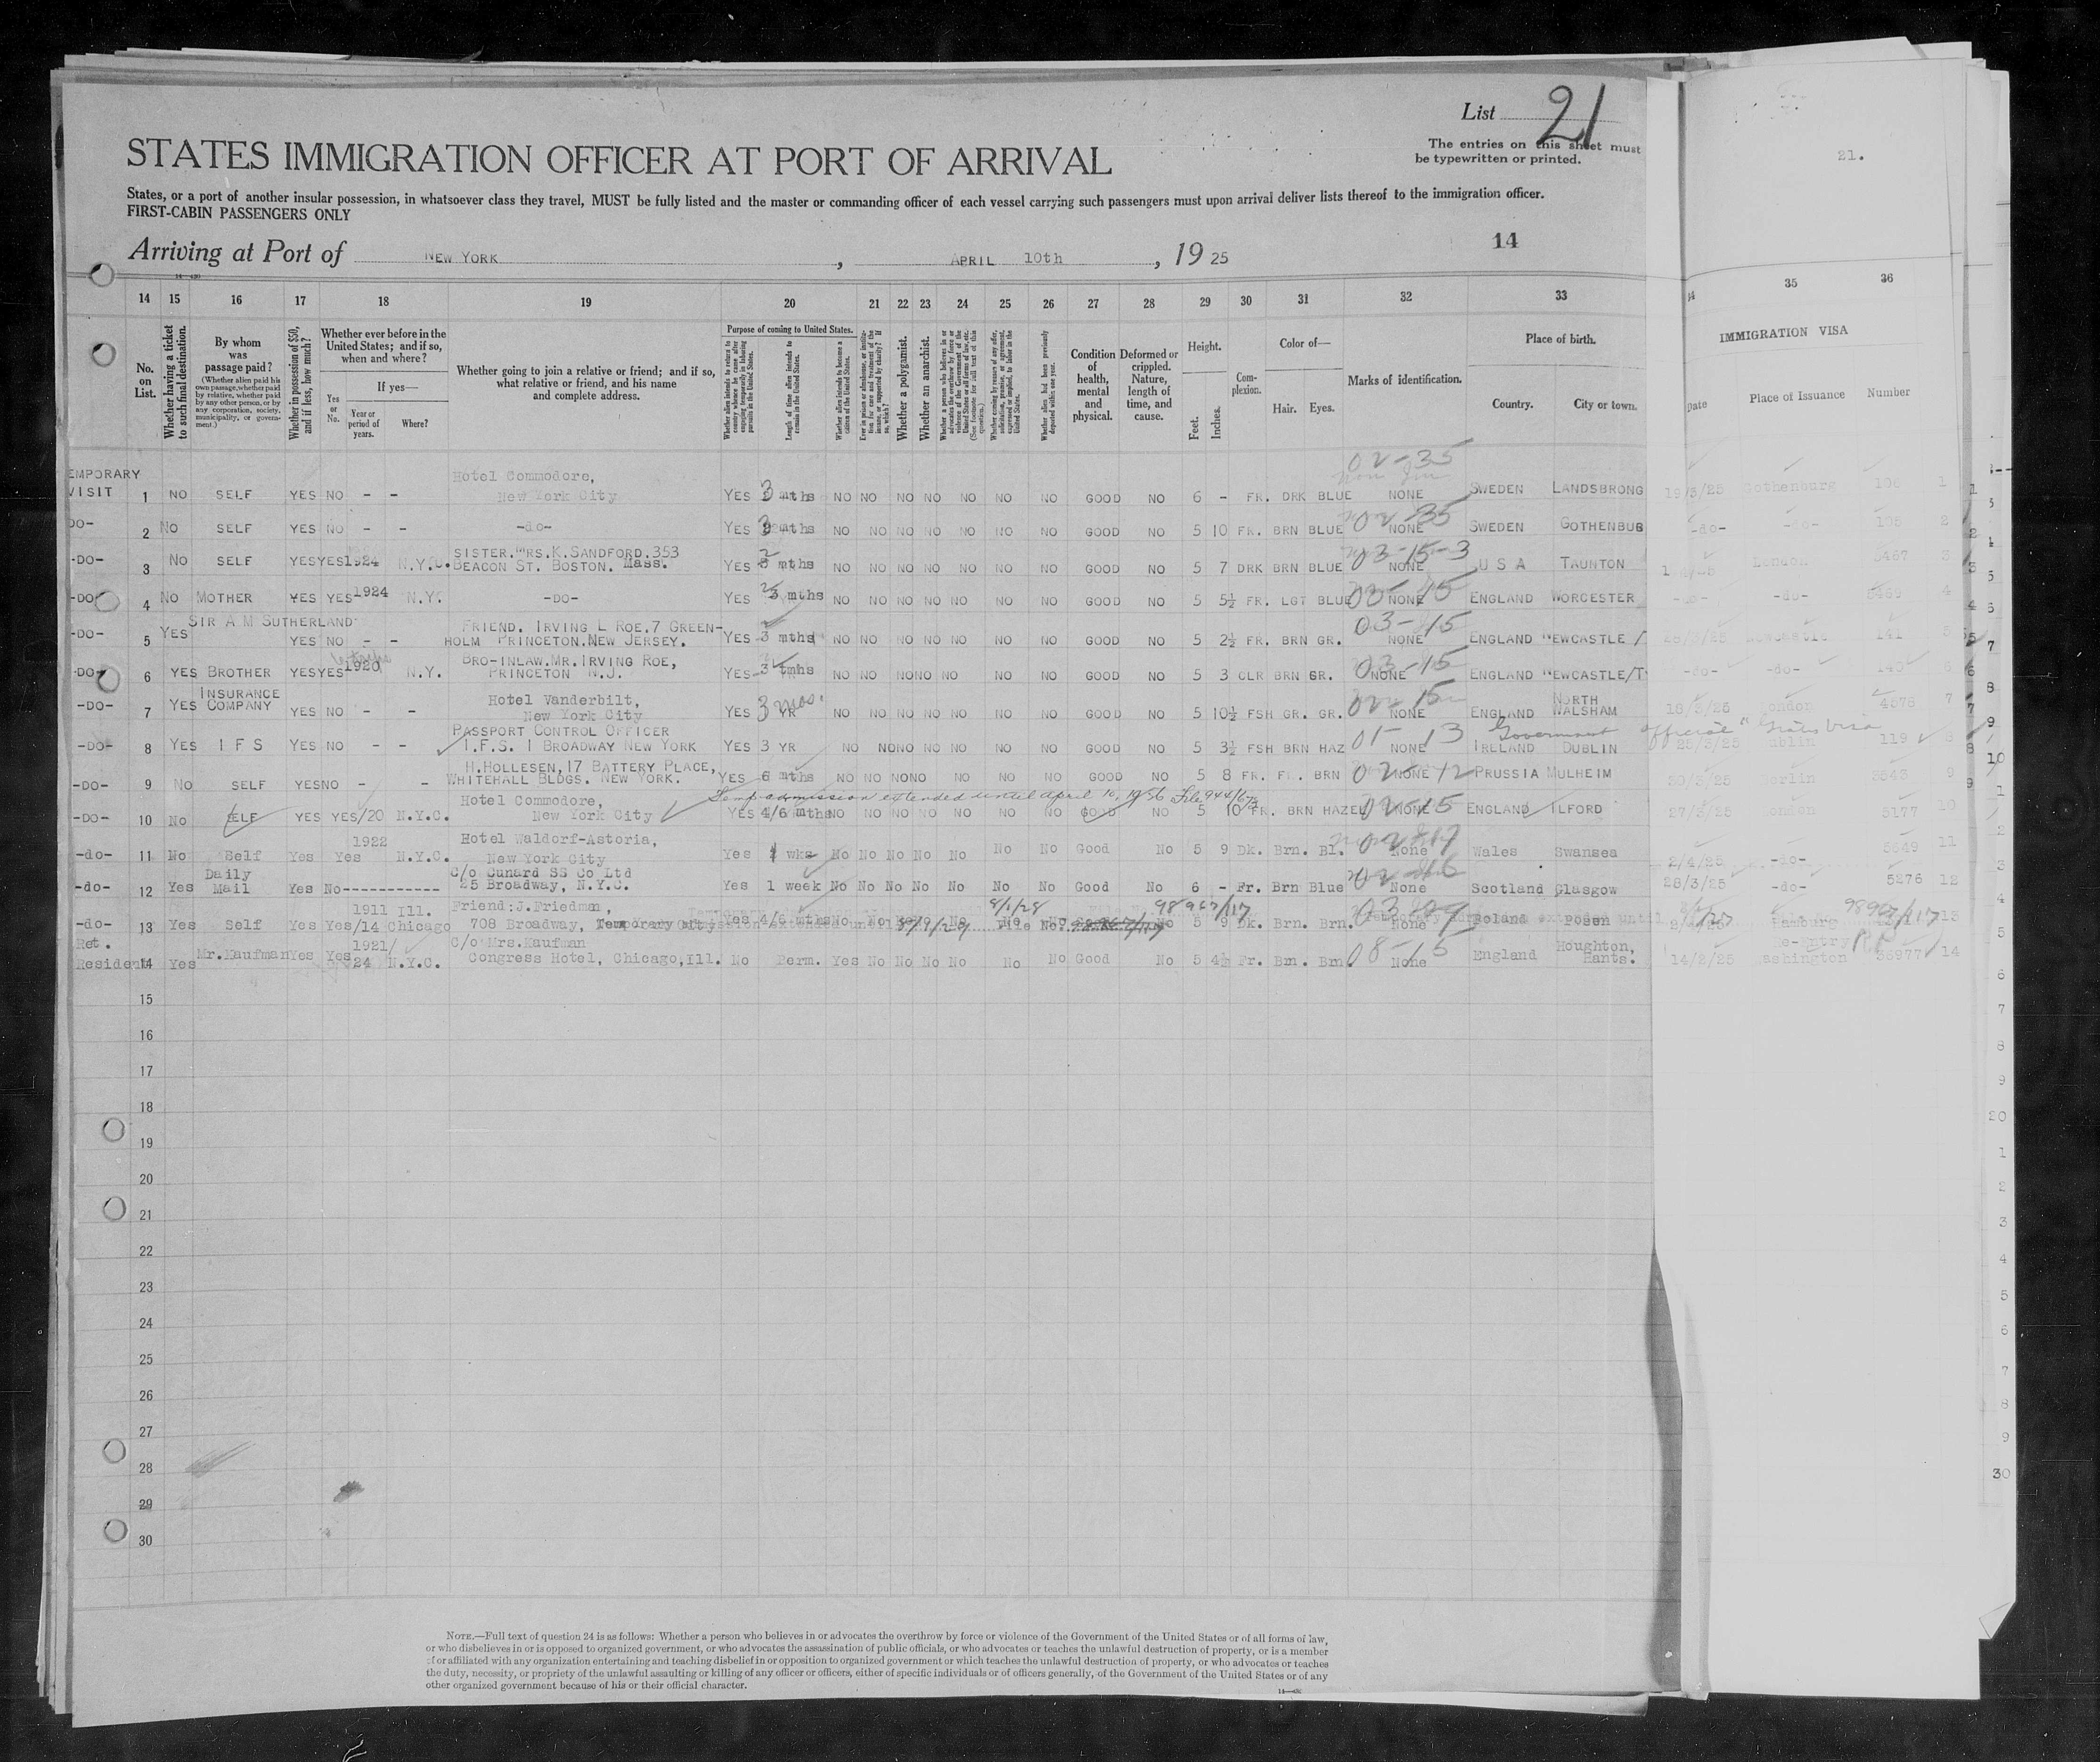 List 21
The entries on this sheet must
be typewritten or printed.
21.
STATES IMMIGRATION OFFICER AT PORT OF ARRIVAL
States, or a port of another insular possession, in whatsoever class they travel, MUST be fully listed and the master or commanding officer of each vessel carrying such passengers must upon arrival deliver lists thereof to the immigration officer.
FIRST-CABIN PASSENGERS ONLY
14
Arriving at Port of NEW YORK, APRIL 10th, 1925
14 15 16 17 18 19 20 21 22 23 24 25 26 27 28 29 30 31 32 33 35 36
No. on List.
Whether having a ticket to such final destination.
By whom was passage paid?
(Whether alien paid his own passage, whether paid by relative, whether paid by any other person, or by any corporation, society, municipality, or government.)
Whether in possession of $50, and if less, how much?
Whether ever before in the United States; and if so, when and where?
If yes—
Yes or No.
Year or period of years.
Where?
Whether going to join a relative or friend; and if so, what relative or friend, and his name and complete address.
Purpose of coming to United States.
Whether alien intends to return to country whence he came after engaging temporarily in laboring pursuits in the United States.
Length of time alien intends to remain in the United States.
Whether alien intends to become a citizen of the United States.
Ever in prison or almshouse, or institution for care and treatment of the insane, or supported by charity? If so, which?
Whether a polygamist.
Whether an anarchist.
Whether a person who believes in or advocates the overthrow by force or violence of the Government of the United States or all forms of law, etc. (See footnote for full text of this question.)
Whether coming by reason of any offer, solicitation, promise, or agreement, expressed or implied, to labor in the United States.
Whether alien had been previously deported within one year.
Condition of health, mental and physical.
Deformed or crippled. Nature, length of time, and cause.
Height.
Feet. Inches.
Complexion.
Color of—
Hair. Eyes.
Marks of identification.
Place of birth.
Country. City or town.
IMMIGRATION VISA
Date Place of Issuance Number
EMPORARY VISIT 1 NO SELF YES NO - - Hotel Commodore, New York City YES 3 mths NO NO NO NO NO NO NO GOOD NO 6 - FR. DRK BLUE 02-35 NONE SWEDEN LANDSBRONG 19/3/25 Gothenburg 106 1
DO- 2 NO SELF YES NO - - -do- YES 3 mths NO NO NO NO NO NO NO GOOD NO 5 10 FR. BRN BLUE 02-35 NONE SWEDEN GOTHENBUG -do- -do- 105 2
-DO- 3 NO SELF YES YES 1924 N.Y.C. SISTER.MRS.K.SANDFORD.353 BEACON ST. BOSTON. Mass. YES mths NO NO NO NO NO NO NO GOOD NO 5 7 DRK BRN BLUE 03-15-3 NONE U S A TAUNTON London 5467 3
-DO- 4 NO MOTHER YES YES 1924 N.Y. -DO- YES 3 mths NO NO NO NO NO NO NO GOOD NO 5 5½ FR. LGT BLUE 03-15 NONE ENGLAND WORCESTER -do- -do- 5469 4
-DO- 5 YES SIR A M SUTHERLAND YES NO - - FRIEND. IRVING L ROE.7 GREEN-HOLM PRINCETON.NEW JERSEY. YES 3 mths NO NO NO NO NO NO NO GOOD NO 5 2½ FR. BRN GR. 03-15 NONE ENGLAND NEWCASTLE / Newcastle 141 5
-DO- 6 YES BROTHER YES YES 1920 N.Y. BRO-INLAW.MR.IRVING ROE, PRINCETON N.J. YES 3 tmhs NO NO NO NO NO NO NO GOOD NO 5 3 CLR BRN GR. 03-15 NONE ENGLAND NEWCASTLE/T -do- -do- 140 6
-DO- 7 YES INSURANCE COMPANY YES NO - - Hotel Vanderbilt, New York City YES 3 YR mos. NO NO NO NO NO NO NO GOOD NO 5 10½ FSH GR. GR. 02-15 NONE ENGLAND NORTH WALSHAM 18/3/25 London 4578 7
-DO- 8 YES I F S YES NO - - PASSPORT CONTROL OFFICER I.F.S. 1 BROADWAY NEW YORK YES 3 YR NO NO NO NO NO NO NO GOOD NO 5 3½ FSH BRN HAZ 01-13 NONE IRELAND DUBLIN Government official "gratis visa 25/3/25 ublin 119 8
-DO- 9 NO SELF YES NO - - H.HOLLESEN,17 BATTERY PLACE, WHITEHALL BLDGS. NEW YORK. YES 6 mths NO NO NO NO NO NO NO GOOD NO 5 8 FR. FR. BRN 02-12 NONE PRUSSIA MULHEIM 30/3/25 Berlin 3543 9
Temp admission extended until April 10, 1926 File 944/672
-DO- 10 NO SELF YES YES/20 N.Y.C. Hotel Commodore, New York City YES 4/6 mths NO NO NO NO NO NO NO GOOD NO 5 10 FR. BRN HAZEL 02-15 NONE ENGLAND ILFORD 27/3/25 London 5177 10
-do- 11 No Self Yes Yes 1922 N.Y.C. Hotel Waldorf-Astoria, New York City Yes wks No No No No No No No Good No 5 9 Dk. Brn. Bl. None Wales Swansea 2/4/25 -do- 5649 11
-do- 12 Yes Daily Mail Yes No----------- C/o Cunard SS Co Ltd 25 Broadway, N.Y.C. Yes 1 week No No No No No No No Good No 6 - Fr. Brn Blue None Scotland Glasgow 28/3/25 -do- 5276 12
-do- 13 Yes Self Yes Yes 1911/14 Ill. Chicago Friend:J.Friedman, 708 Broadway, Yes 4/6 mths No No No No No 5 9 Dk. Brn. Brn. None Poland Posen Hamburg 13
98967/117
Ret. Resident 14 Yes Mr.Kaufman Yes Yes 1921/24 N.Y.C. C/o Mrs.Kaufman Congress Hotel, Chicago,Ill. No Perm. Yes No No No No No No Good No 5 4½ Fr. Brn. Brn. 08-15 None England Houghton, Hants. 14/2/25 Re-Entry Washington 36977 14
15
16
17
18
19
20
21
22
23
24
25
26
27
28
29
30
NOTE.—Full text of question 24 is as follows: Whether a person who believes in or advocates the overthrow by force or violence of the Government of the United States or of all forms of law,
or who disbelieves in or is opposed to organized government, or who advocates the assassination of public officials, or who advocates or teaches the unlawful destruction of property, or is a member
of or affiliated with any organization entertaining and teaching disbelief in or opposition to organized government or which teaches the unlawful destruction of property, or who advocates or teaches
the duty, necessity, or propriety of the unlawful assaulting or killing of any officer or officers, either of specific individuals or of officers generally, of the Government of the United States or of any
other organized government because of his or their official character.